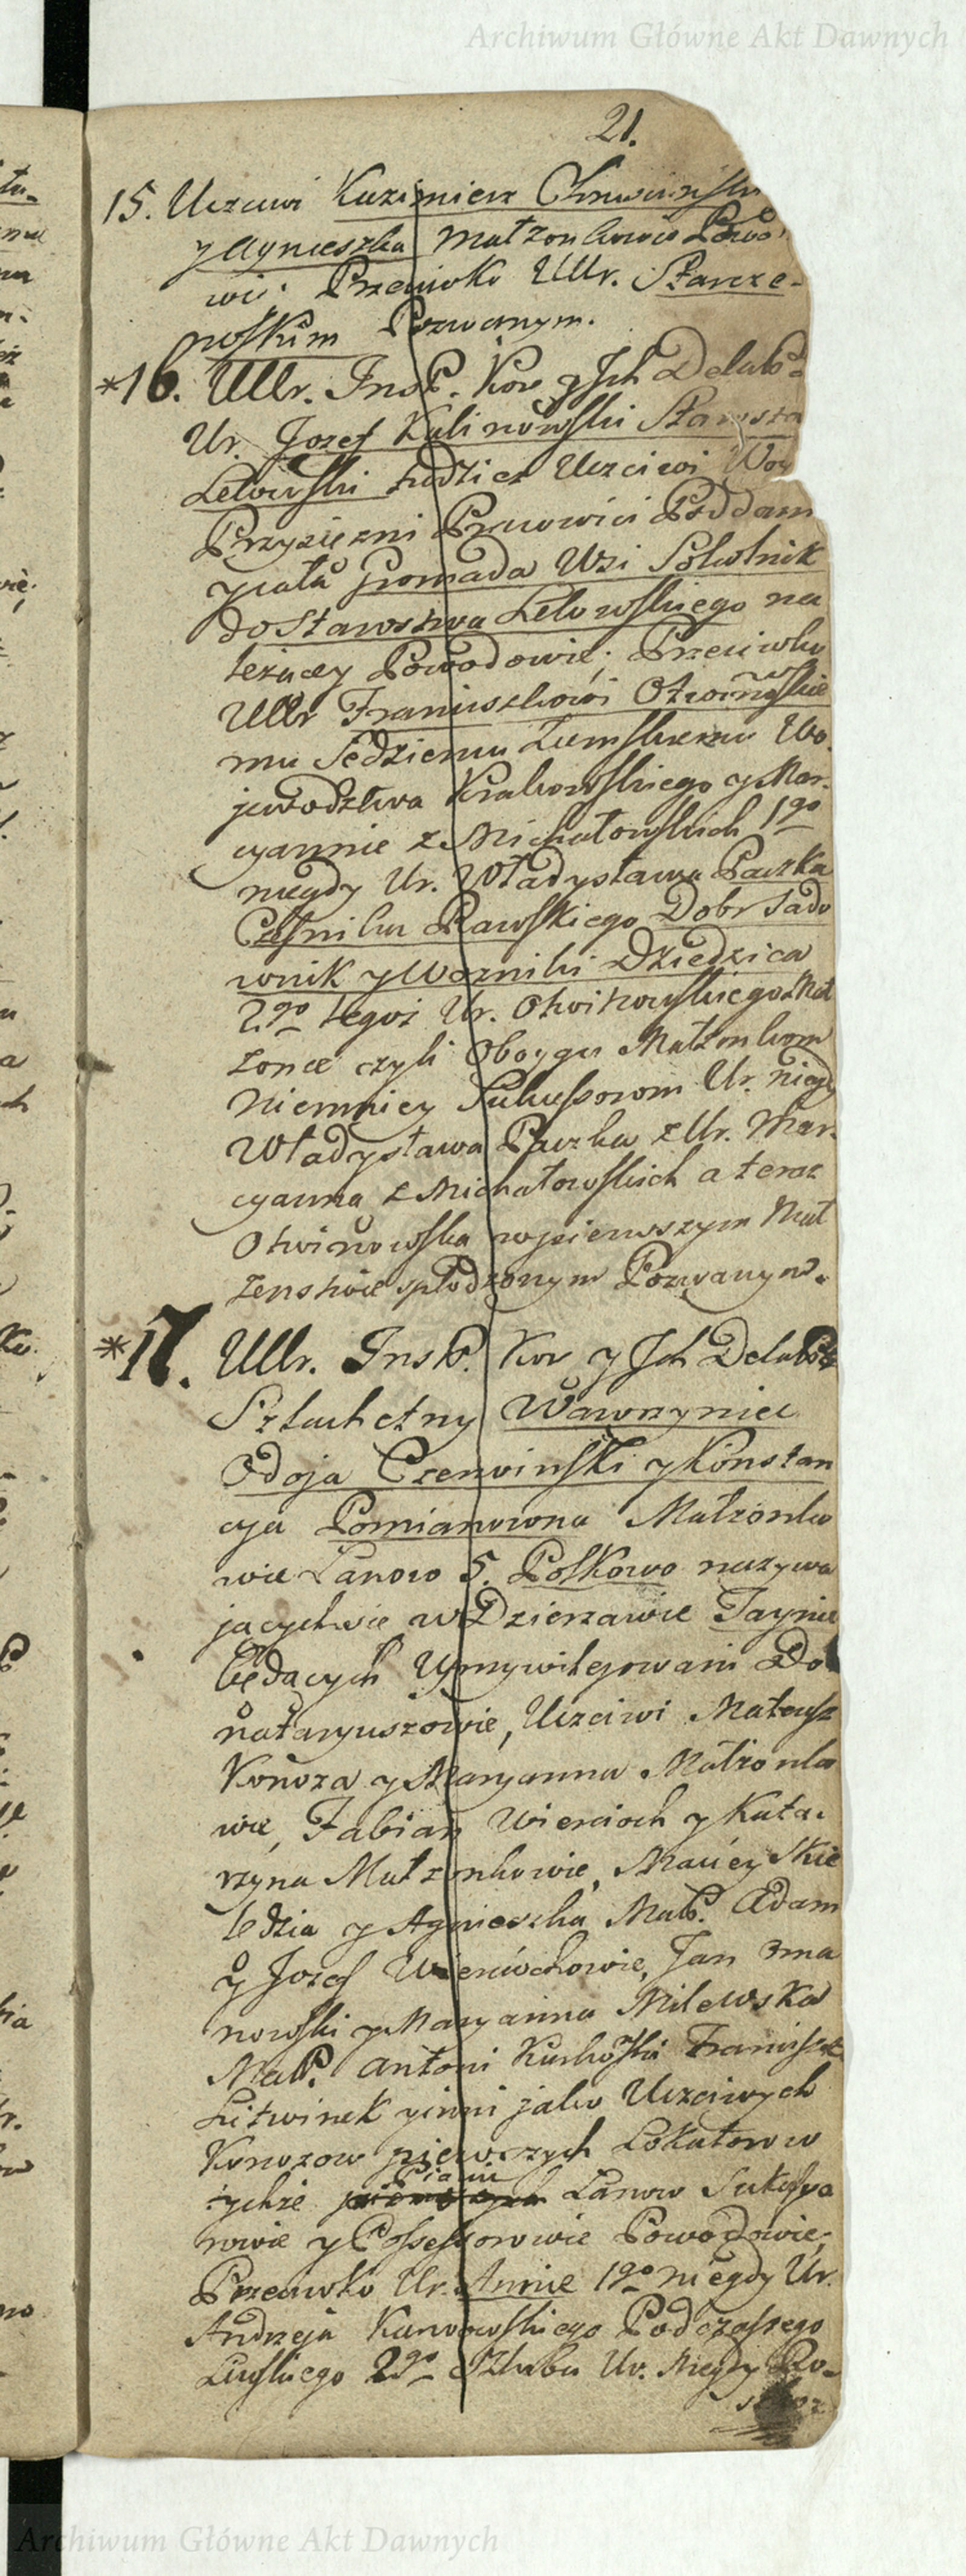 Archiwum Główne Akt Dawnych
21.
15. Uczciwi Kazimierz
y Agnieszka Małzonkowie Powo
wie; Przeciwko UUr. Starze-
wskim Pozwanym.
*16. UUr. Inst. Kor y Ich Delat.
Ur. Jozef Kalinowski Starosta
Lelowski tudzież Uczciwi Woy
Przysiezni Pracowici Poddani
y cała Gromada Wsi
do Starostwa Lelowskiego na
leżący Powodowie; Przeciwko
UUr Franciszkowi Otwinowskie
mu Sędziemu Ziemskiemu Wo
jewodztwa Krakowskiego y Mar.
cyannie z Michałowskich 1go
niegdy Ur. Władysława Paczka
Cześnika Rawskiego Dobr Sado
wnik y Wozniki Dziedzica
2go tegoż Ur. Otwinowskiego Mał
zonce czyli Oboygu Małzonkom
Niemniey Sukcessorom Ur. niegdy
Władysława Paczka z Ur. Mar.
cyanną z Michałowskich a teraz
Otwinowską w pierwszym Mał
zenstwie spłodzonym Pozwanym.
*17. UUr. Inst. Kor y Ich Delat
Szlachetny Wawrzyniec
Odoja Czerwinski y Konstan
cya Pomianowna Małzonko
wie Łanow 5. Polkowo nazywa
jącychsie w Dzierzawie Tayno
będacych Uprzywilejowani Do
nataryuszowie, Uczciwi Mateusz
Konoza y Maryanna Małzonko
wie, Fabian Wiercioch y Kata.
rzyna Małzonkowie, Maciey Skie
ledzia y Agnieszka Małż. Adam
y Jozef Wierciochowie, Jan Zma
nowski y Maryanna Milewska
Małż. Antoni Kurkowski Franciszek
Litwinek y inni jako Uczciwych
Konozow pierwszych Lokatorow
tychże Pięciu Łanow Sukcesso
rowie y Possessorowie Powodowie;
Przeciwko Ur. Annie 1go niegdy Ur.
Andrzeja Karwowskiego Podczaszego
Łuckiego 2go Szlubu Ur. Niegdy
Archiwum Główne Akt Dawnych